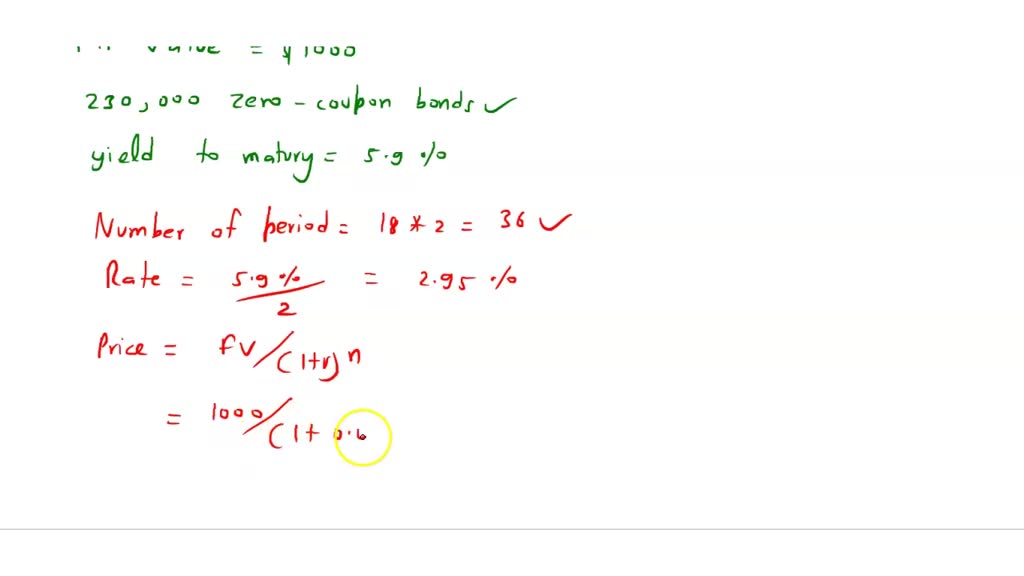 Value = $1000
230,000 zero-coupon bonds ✓
yield to matury = 5.9 %
Number of period = 18 * 2 = 36 ✓
Rate = 5.9 % / 2 = 2.95 %
Price = FV/(1+r)^n
= 1000/(1+ 0.